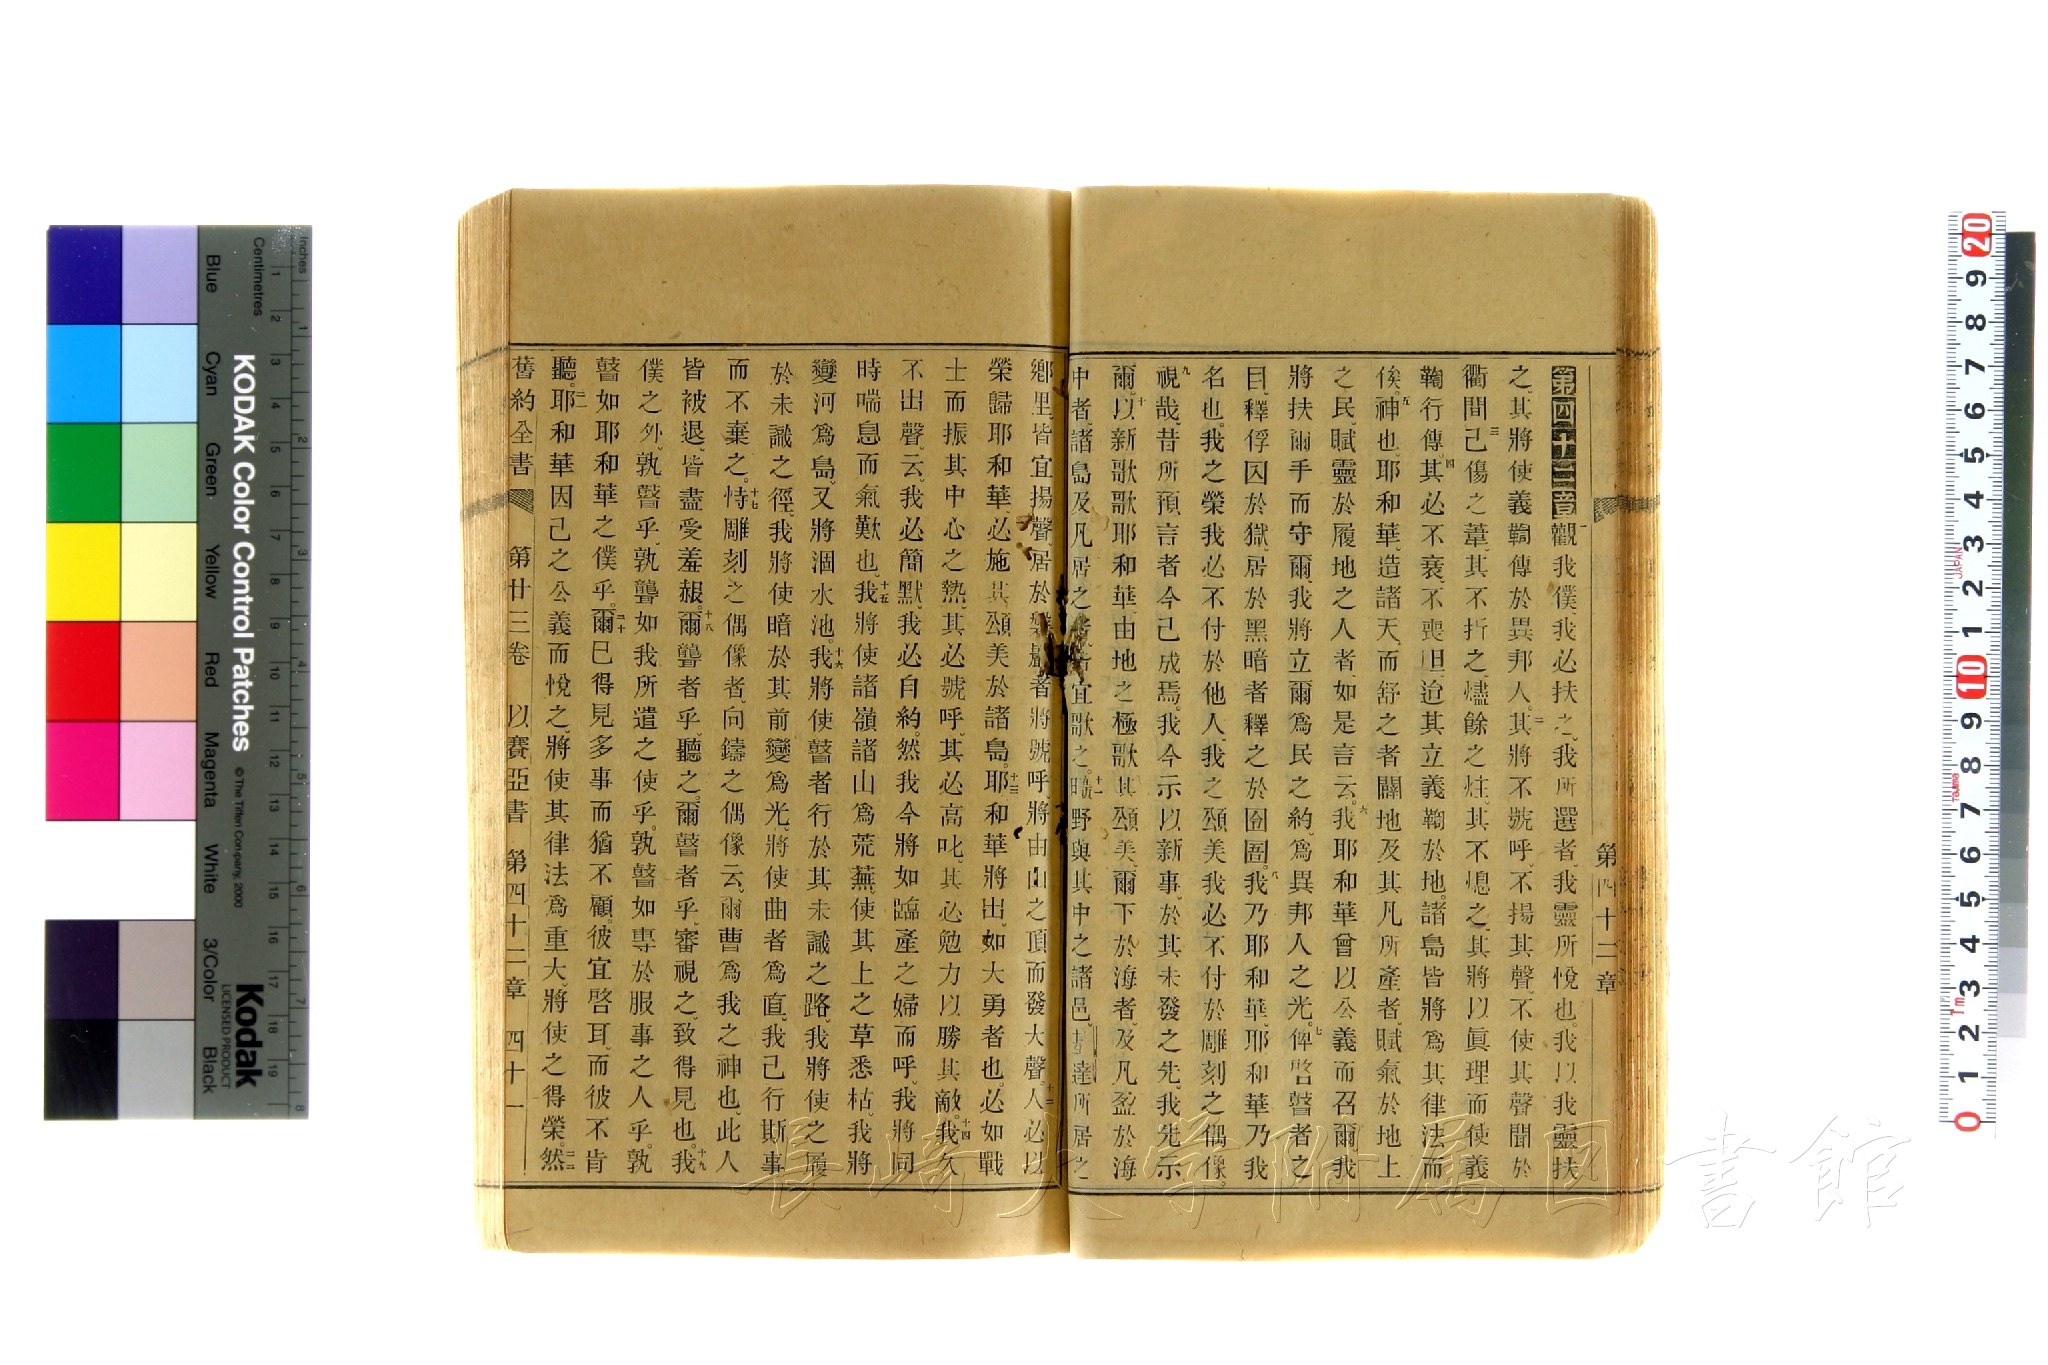 第四十二章
第四十二章觀我僕、我必扶之、我所選者、我靈所悅也。我以我靈扶
之、其將使義鞫傳於異邦人。二其將不號呼、不揚其聲、不使其聲聞於
衢間。三已傷之葦、其不折之、燼餘之炷、其不熄之、其將以眞理而使義
鞫行傳。四其必不衰、不喪胆、迨其立義鞫於地、諸島皆將爲其律法而
俟。五神也、耶和華、造諸天、而舒之者、闢地及其凡所產者、賦氣於地上
之民、賦靈於履地之人者、如是言云。六我耶和華曾以公義而召爾、我
將扶爾手而守爾、我將立爾爲民之約、爲異邦人之光。七俾啓瞽者之
目、釋俘囚於獄、居於黑暗者釋之於囹圄。八我乃耶和華、耶和華乃我
名也、我之榮我必不付於他人、我之頌美我必不付於雕刻之偶像。
九視哉、昔所預言者今已成焉。我今示以新事、於其未發之先、我先示
爾。十以新歌歌耶和華、由地之極歌其頌美、爾下於海者、及凡盈於海
中者、諸島及凡居之者、宜歌之。十一曠野與其中之諸邑、基達所居之
鄉里、皆宜揚聲、居於磐巖者將號呼、將由山之頂而發大聲。十二人必以
榮歸耶和華、必施其頌美於諸島。十三耶和華將出、如大勇者也、必如戰
士而振其中心之熱、其必號呼、其必高叱、其必勉力以勝其敵。十四我久
不出聲、云、我必簡默、我必自約。然我今將如臨產之婦而呼、我將同
時喘息而氣歎也。十五我將使諸嶺諸山爲荒蕪、使其上之草悉枯。我將
變河爲島、又將涸水池。十六我將使瞽者行於其未識之路、我將使之履
於未識之徑、我將使暗於其前變爲光、將使曲者爲直。我已行斯事
而不棄之。十七恃雕刻之偶像者、向鑄之偶像云、爾曹爲我之神也、此人
皆被退、皆盡受羞赧。十八爾聾者乎、聽之、爾瞽者乎、審視之、致得見也。十九我
僕之外、孰瞽乎、孰聾如我所遣之使乎。孰瞽如專於服事之人乎。孰
瞽如耶和華之僕乎。二十爾已得見多事而猶不顧。彼宜啓耳、而彼不肯
聽。二一耶和華因己之公義而悅之、將使其律法爲重大、將使之得榮。二二然
舊約全書 第廿三卷 以賽亞書 第四十二章 四十一
KODAK Color Control Patches
© The Tiffen Company, 2000
Kodak
LICENSED PRODUCT
Inches
Centimetres
Blue
Cyan
Green
Yellow
Red
Magenta
White
3/Color
Black
JAPAN
長崎大学附属図書館